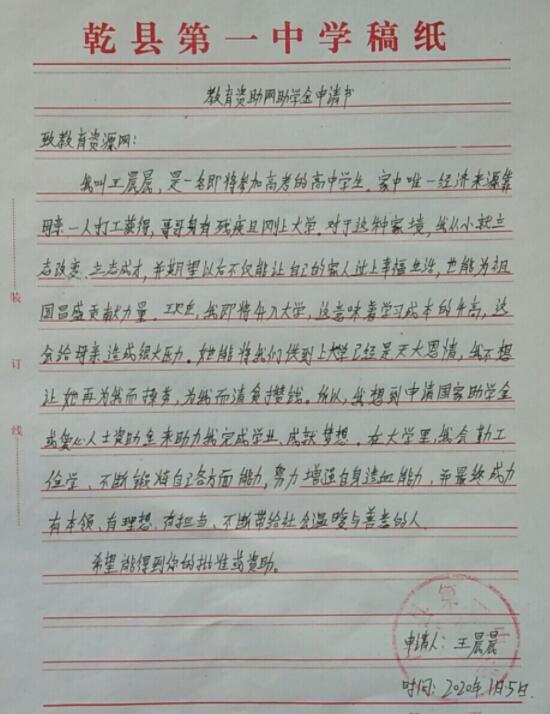 乾县第一中学稿纸
教育资助网助学金申请书
致教育资源网：
我叫王晨晨，是一名即将参加高考的高中学生。家中唯一经济来源靠
母亲一人打工获得，哥哥身有残疾且刚上大学。对于这种家境，我从小就立
志改变、立志成才，并期望以后不仅能让自己的家人过上幸福生活，也能为祖
国昌盛贡献力量。现在，我即将升入大学，这意味着学习成本的升高，这
会给母亲造成很大压力。她能将我们供到上大学已经是天大恩情，我不想
让她再为我而操劳，为我而清贫攒钱。所以，我想到申请国家助学金
或爱心人士资助金来助力我完成学业、成就梦想。在大学里，我会勤工
俭学、不断锻炼自己各方面能力，努力增强自身造血能力，而最终成为
有本领、有理想、有担当、不断带给社会温暖与善意的人。
希望能得到你的批准或资助。
申请人：王晨晨
时间：2020年1月5日.
装
订
线